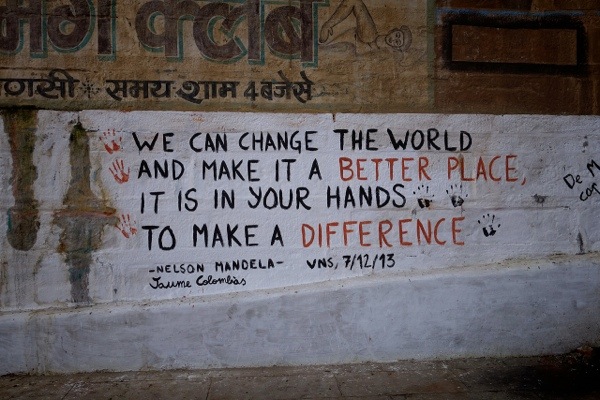 क्टांब
समय शाम 4 बजे से
WE CAN CHANGE THE WORLD
AND MAKE IT A BETTER PLACE,
IT IS IN YOUR HANDS
TO MAKE A DIFFERENCE
-NELSON MANDELA- VNS, 7/12/13
Jaume Colombàs
De M